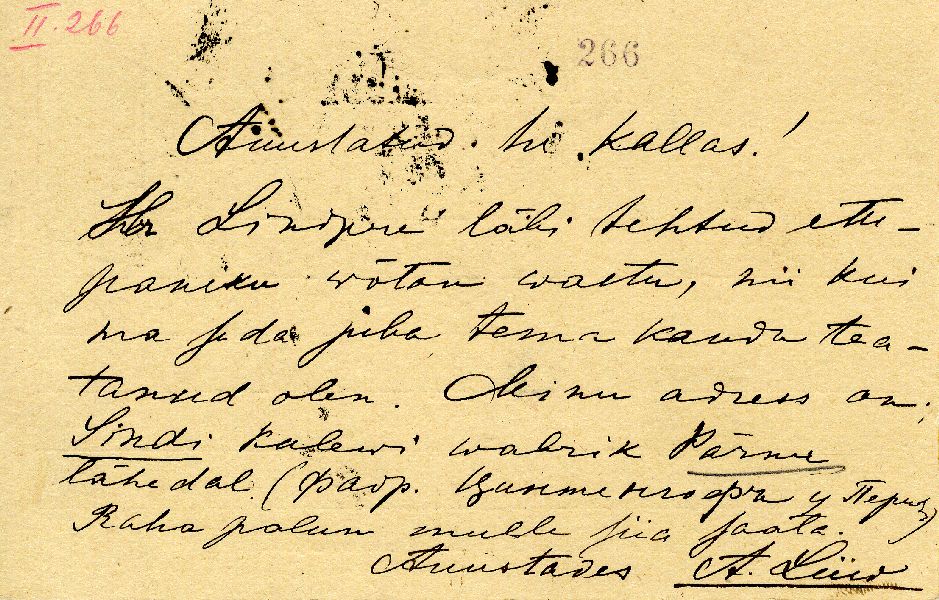 II. 266
266
Auustatud hr Kallas!
Hr Lindpere läbi tehtud ette-
paneku wõtan wastu, nii kui
ma seda juba tema kaudu tea-
tanud olen. Minu adress on:
Sindi kalewi wabrik Pärnu
lähedal (фабр. Цинтенгофъ у Перн
Raha palun mulle siia saata.
Auustades A. Liiw